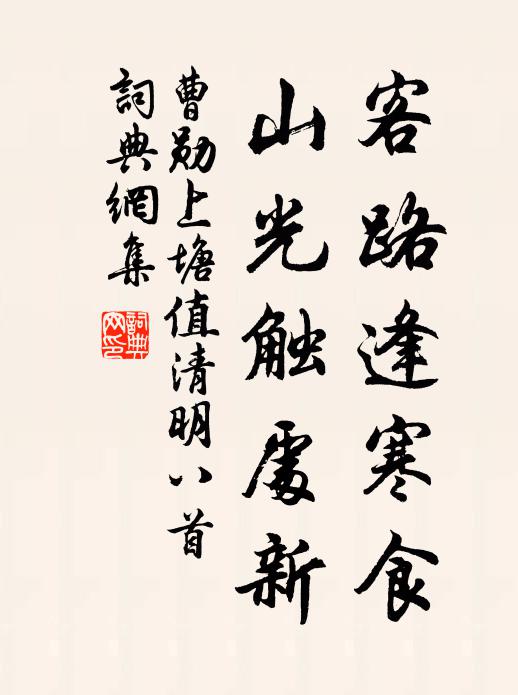 客路逢寒食
山光触處新
曹勛上塘值清明八首
詞典網集
詞典网印